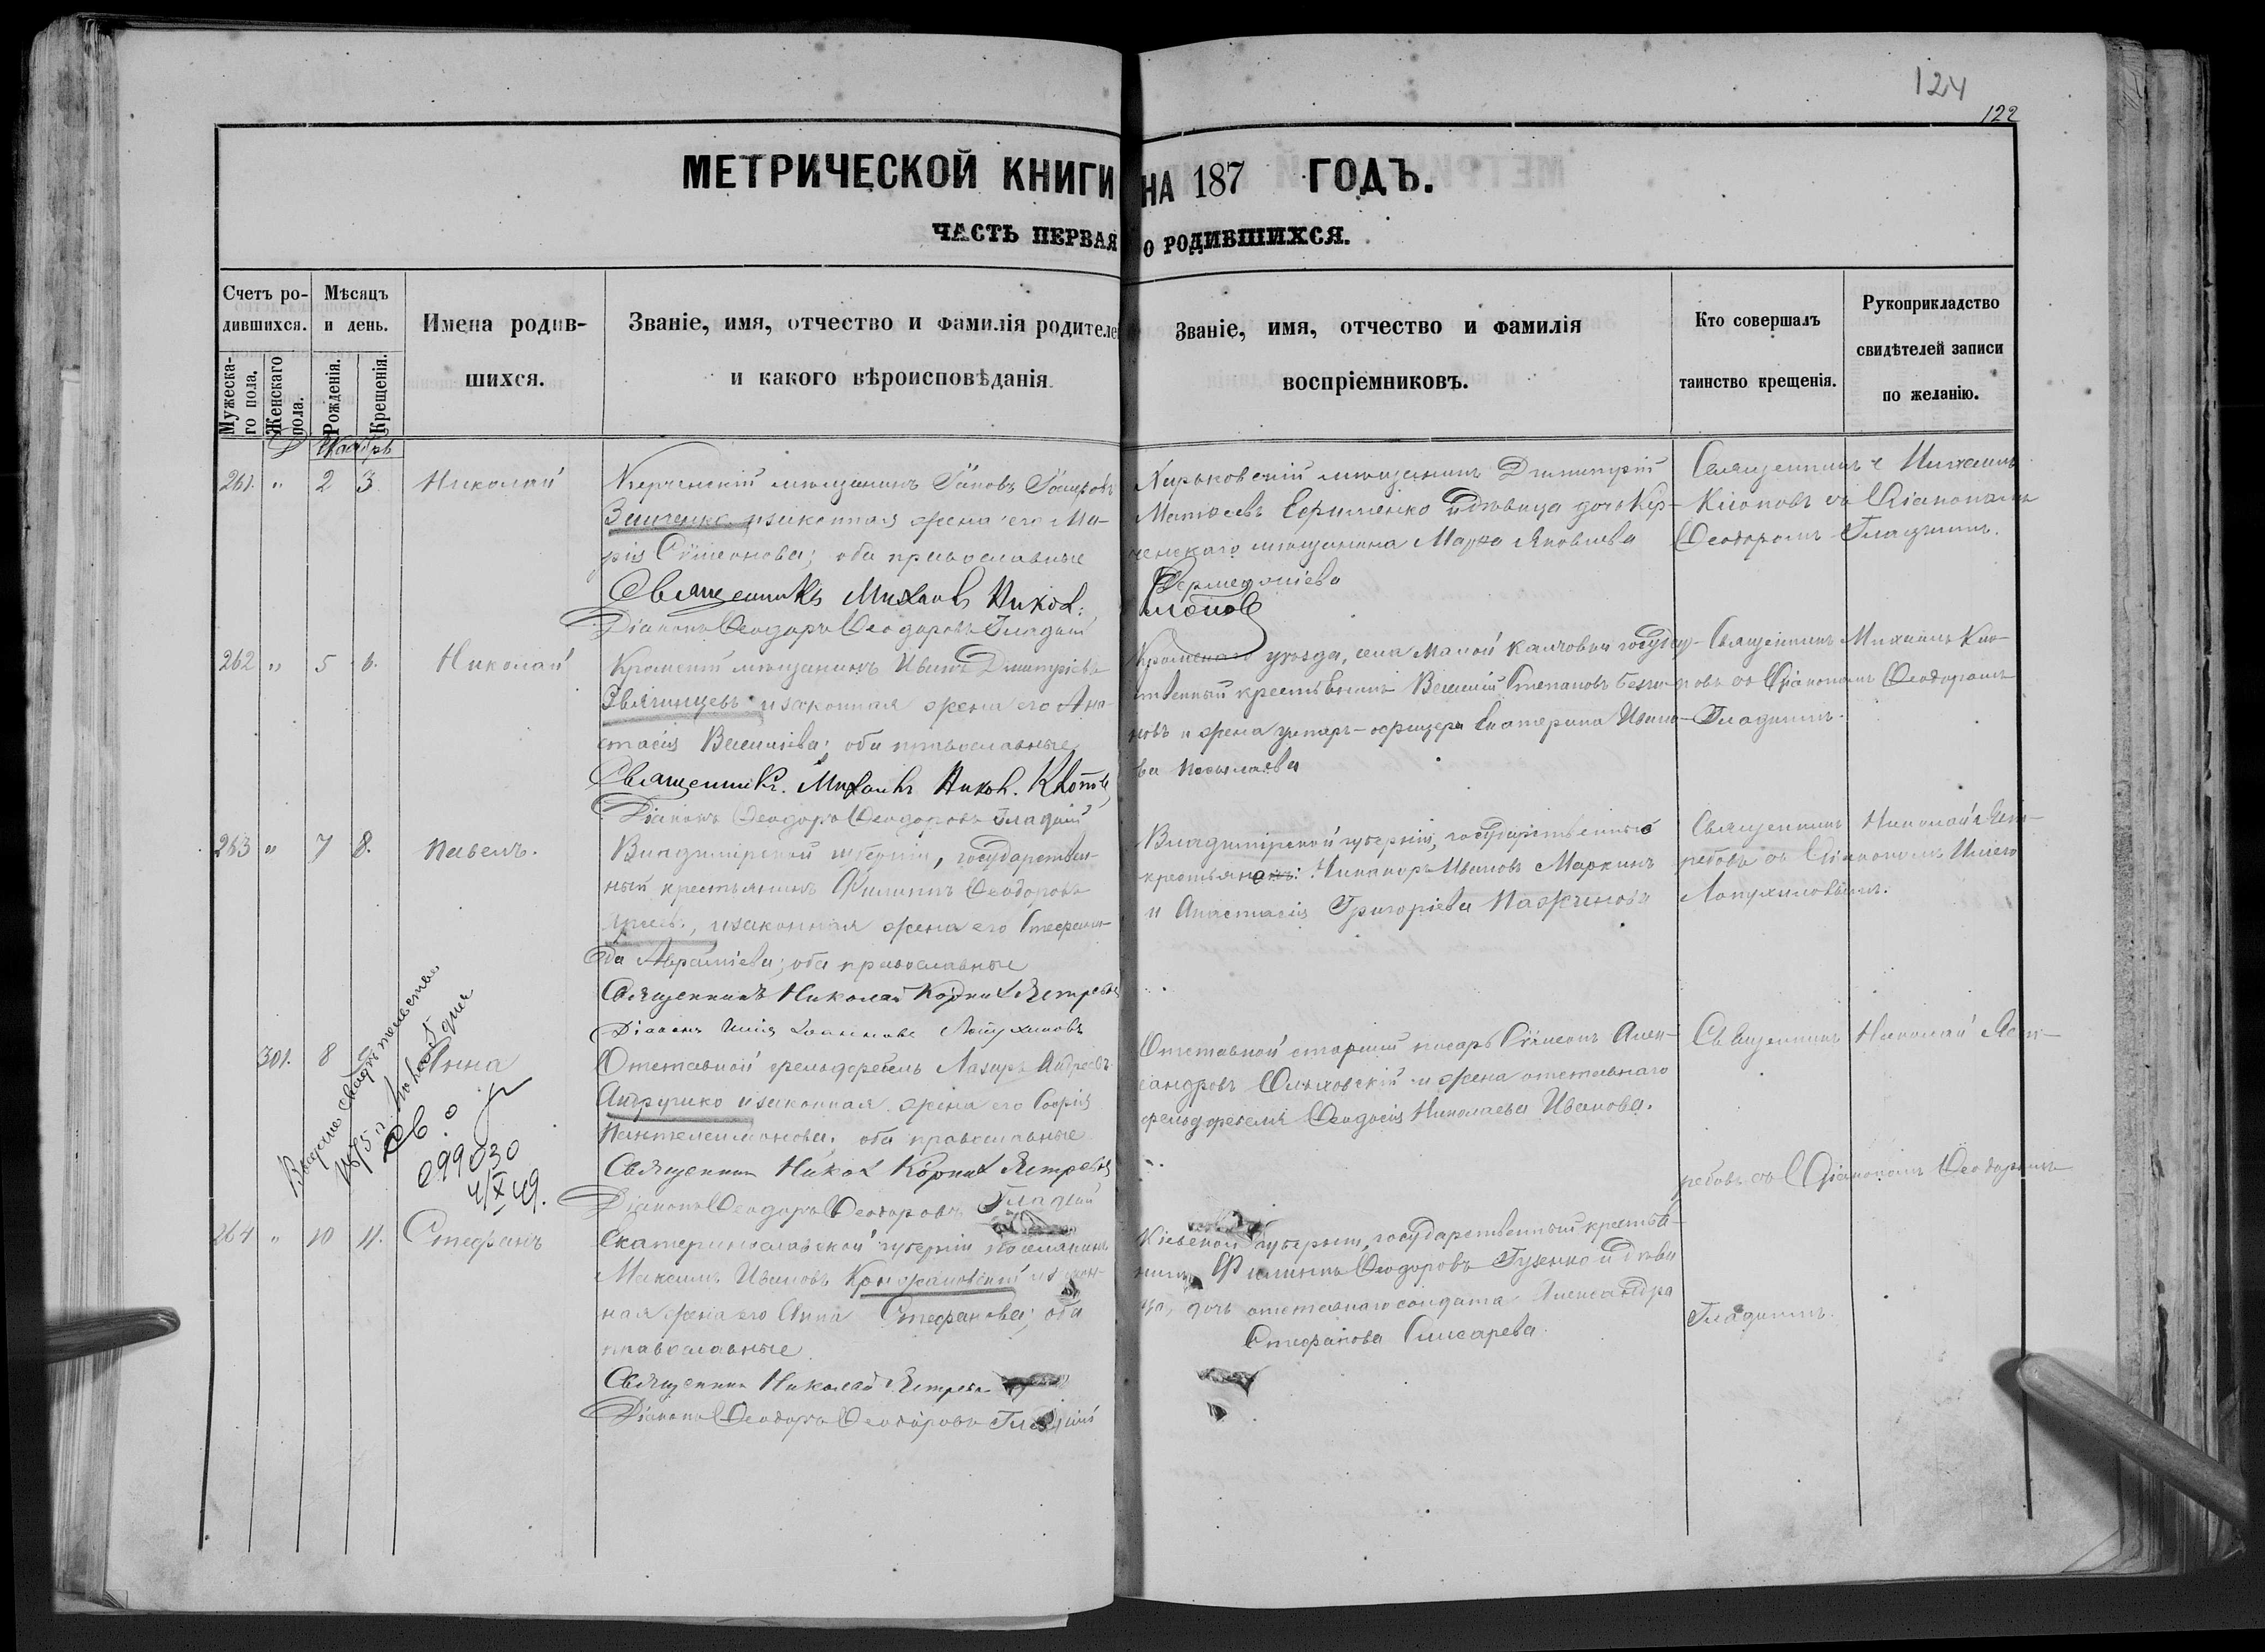 124
122
МЕТРИЧЕСКОЙ КНИГИ НА 187 ГОДЪ.
ЧАСТЬ ПЕРВАЯ О РОДИВШИХСЯ.
Счетъ ро-
дившихся.
Мужеска-
го пола.
Женскаго
пола.
Мѣсяцъ
и день.
Рожденія.
Крещенія.
Имена родив-
шихся.
Званіе, имя, отчество и фамилія родителе
и какого вѣроисповѣданія.
Званіе, имя, отчество и фамилія
воспріемниковъ.
Кто совершалъ
таинство крещенія.
Рукоприкладство
свидѣтелей записи
по желанію.
Декабрь
261. " 2 3. Николай
Керченскій мѣщанинъ
и законная жена его Ма-
рія Сѵмеонова; оба православные
Священникъ Михаилъ Никол:
Діаконъ Ѳеодоръ Ѳеодоровъ Гладкій
Харьковскій мѣщанинъ Димитрій
Матѳеевъ Ефименко и дѣвица дочь Кер-
ченскаго мѣщанина Марѳа Яковлева
Священникъ Михаилъ
съ Діакономъ
Ѳеодоромъ Гладкимъ.
262 " 5 6. Николай
Кромскій мѣщанинъ Иванъ Дмитріевъ
Звягинцевъ и законная жена его Ана-
стасія Васильева; оба православные
Священникъ Михаилъ Никол.
Діаконъ Ѳеодоръ Ѳеодоровъ Гладкій
Кромскаго уѣзда, села Малой государ-
ственный крестьянинъ Василій Степановъ
новъ и жена унтеръ-офицера Екатерина Ивано-
ва
Священникъ Михаилъ
съ Діакономъ Ѳеодоромъ
Гладкимъ.
263 " 7 8. Павелъ.
Владимірской губерніи, государствен-
ный крестьянинъ Филиппъ Ѳеодоровъ
и законная жена его Стефани-
да Авраміева; оба православные
Священникъ Николай Корнил. Ястребовъ
Діаконъ Илія Іоанновъ Лопухиновъ
Владимірской губерніи, государственные
крестьяне: Никаноръ Ивановъ Маркинъ
и Анастасія Григоріева
Священникъ Николай Яст-
ребовъ съ Діакономъ Иліею
Лопухиновымъ.
301. 8 Анна
Выдано свидѣтельство
1875 г.
099030
4/X 49.
Отставной фельдфебель Лазарь Андреевъ
Андрушко и законная жена его Софія
Пантелеимонова. оба православные
Священник Никол Корнил Ястребовъ
Діаконъ Ѳеодоръ Ѳеодоровъ Гладкій
Отставной старшій писарь Сѵмеонъ Алек-
сандровъ и жена отставнаго
фельдфебеля Ѳеодосія Николаева Иванова.
Священникъ Николай Яст-
ребовъ съ Діакономъ Ѳеодоромъ
Гладкимъ.
264 " 10 11. Стефанъ
Екатеринославской губерніи поселянинъ
Максимъ Ивановъ и закон-
ная жена его Анна Стефанова; оба
православные
Священник Николай Ястребов
Діаконъ Ѳеодоръ Ѳеодоровъ Гладкій
Кіевской губерніи, государственный крестья-
нинъ Филиппъ Ѳеодоровъ Гуженко и дѣви-
ца, дочь отставнаго солдата Александра
Стефанова Слисарева.